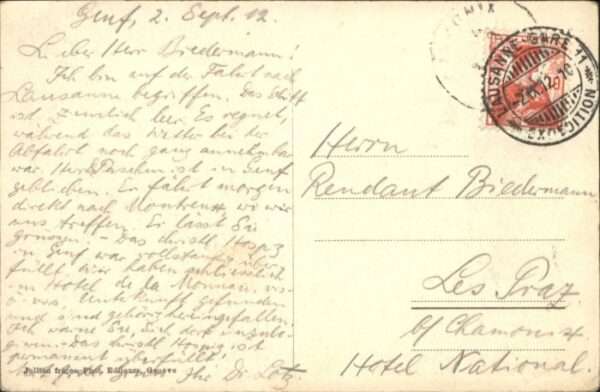 Genf, 2. Sept. 12.
Lieber Herr Biedermann!
Ich bin auf der Fahrt nach
Lausanne begriffen. Das Schiff
ist ziemlich leer. Es regnet,
während das Wetter bei der
Abfahrt noch ganz annehmbar
war. Herr Paschen ist in Genf
geblieben. Er fährt morgen
direkt nach Montreux wo wir
uns treffen. Er lässt Sie
grüssen. - Das christl. Hospiz
in Genf war vollständig über-
füllt, wir haben schliesslich
im Hotel de la Monnaie, vis-
à-vis, Unterkunft gefunden
und sind gehörig
warne Sie, sich dort
Das christl. Hospiz ist
permanent überfüllt!
Ihr Dr. Lotz
Jullien frères, Phot. Editeurs, Genève
LAUSANNE-GARE 11
EXPEDITION
-2.IX.12.-10
Herrn
Rendant Biedermann
Les Praz
b/ Chamonix
Hotel National.